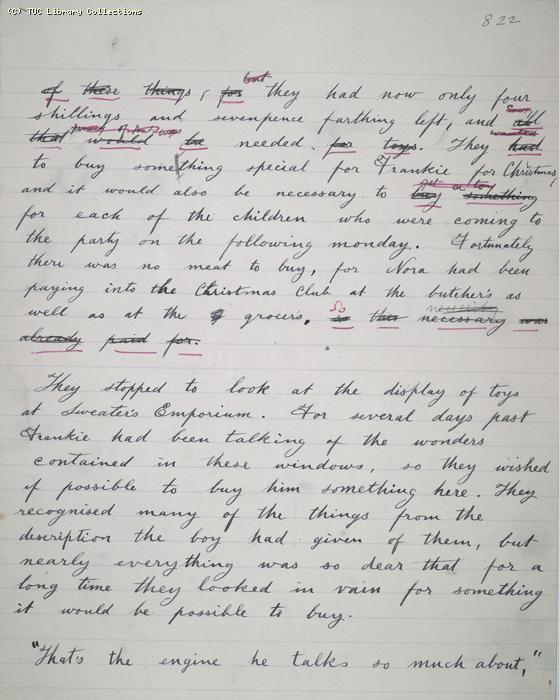 (C) TUC Library Collections
822
but
of these things, for they had now only four
shillings and sevenpence farthing left, and all
that would be needed for toys. They had
wanted
to buy something special for Frankie for Christmas
and it would also be necessary to buy something
get a toy
for each of the children who were coming to
the party on the following monday. Fortunately
there was no meat to buy, for Nora had been
paying into the Christmas Club at the butcher's as
well as at the grocer's. So this necessary was
necessity
already paid for.
They stopped to look at the display of toys
at Sweater's Emporium. For several days past
Frankie had been talking of the wonders
contained in these windows, so they wished
if possible to buy him something here. They
recognised many of the things from the
description the boy had given of them, but
nearly everything was so dear that for a
long time they looked in vain for something
it would be possible to buy.
"That's the engine he talks so much about,"